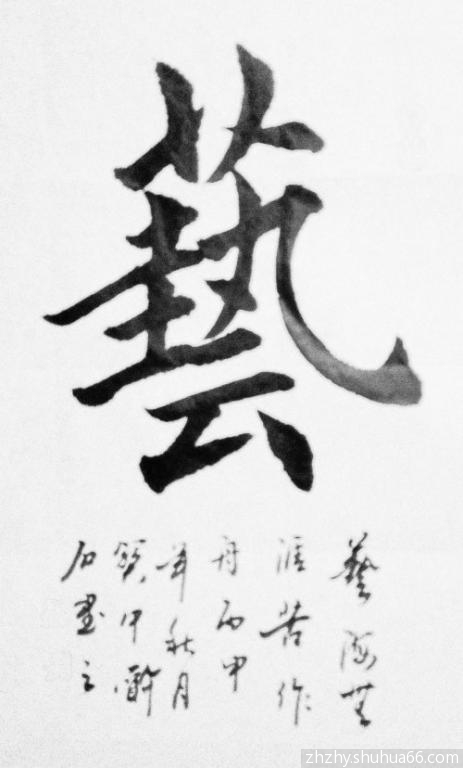 藝
藝海無
涯苦作
舟丙申
年秋月
石書之
zhzhy.shuhua66.com